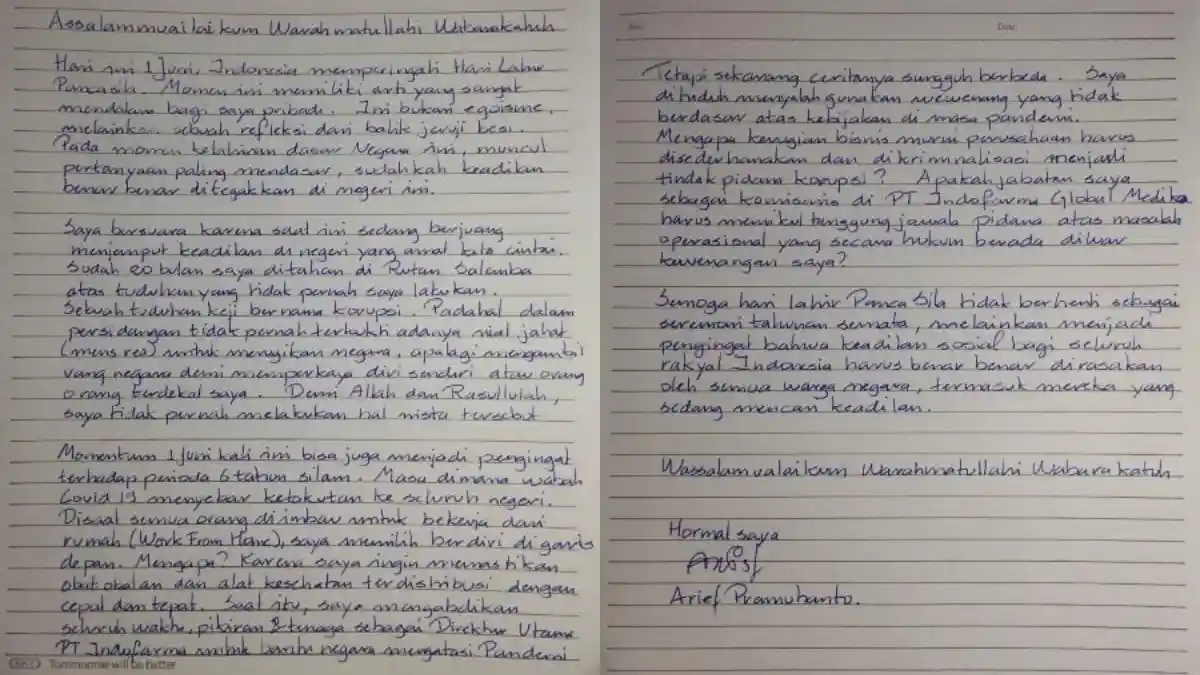 Assalammualaikum Warahmatullahi Wabarakatuh
Hari ini 1 Juni, Indonesia memperingati Hari Lahir
Pancasila. Momen ini memiliki arti yang sangat
mendalam bagi saya pribadi. Ini bukan egoisme,
melainkan sebuah refleksi dari balik jeruji besi.
Pada momen kelahiran dasar Negara ini, muncul
pertanyaan paling mendasar, sudahkah keadilan
benar benar ditegakkan di negeri ini.
Saya bersuara karena saat ini sedang berjuang
menjemput keadilan di negeri yang amat kita cintai.
Sudah 20 bulan saya ditahan di Rutan Salemba
atas tuduhan yang tidak pernah saya lakukan.
Sebuah tuduhan keji bernama korupsi. Padahal dalam
persidangan tidak pernah terbukti adanya niat jahat
(mens rea) untuk merugikan negara, apalagi mengambil
uang negara demi memperkaya diri sendiri atau orang
orang terdekat saya. Demi Allah dan Rasullulah,
saya tidak pernah melakukan hal nista tersebut
Momentum 1 Juni kali ini bisa juga menjadi pengingat
terhadap periode 6 tahun silam. Masa dimana wabah
Covid 19 menyebar ketakutan ke seluruh negeri.
Disaat semua orang diimbau untuk bekerja dari
rumah (Work From Home), saya memilih berdiri di garis
depan. Mengapa? Karena saya ingin memastikan
obat obatan dan alat kesehatan terdistribusi dengan
cepat dan tepat. Saat itu, saya mengabdikan
seluruh waktu, pikiran & tenaga sebagai Direktur Utama
PT Indofarma untuk bantu negara mengatasi Pandemi
Tommorrow will be better
Date:
Tetapi sekarang ceritanya sungguh berbeda. Saya
dituduh menyalahgunakan wewenang yang tidak
berdasar atas kebijakan di masa pandemi.
Mengapa kerugian bisnis murni perusahaan harus
disederhanakan dan dikriminalisasi menjadi
tindak pidana korupsi? Apakah jabatan saya
sebagai komisaris di PT Indofarma Global Medika
harus memikul tanggung jawab pidana atas masalah
operasional yang secara hukum berada diluar
kewenangan saya?
Semoga hari lahir Panca Sila tidak berhenti sebagai
seremoni tahunan semata, melainkan menjadi
pengingat bahwa keadilan sosial bagi seluruh
rakyat Indonesia harus benar benar dirasakan
oleh semua warga negara, termasuk mereka yang
sedang mencari keadilan.
Wassalamualaikum Warahmatullahi Wabarakatuh
Hormat saya
Arief Pramuhanto.